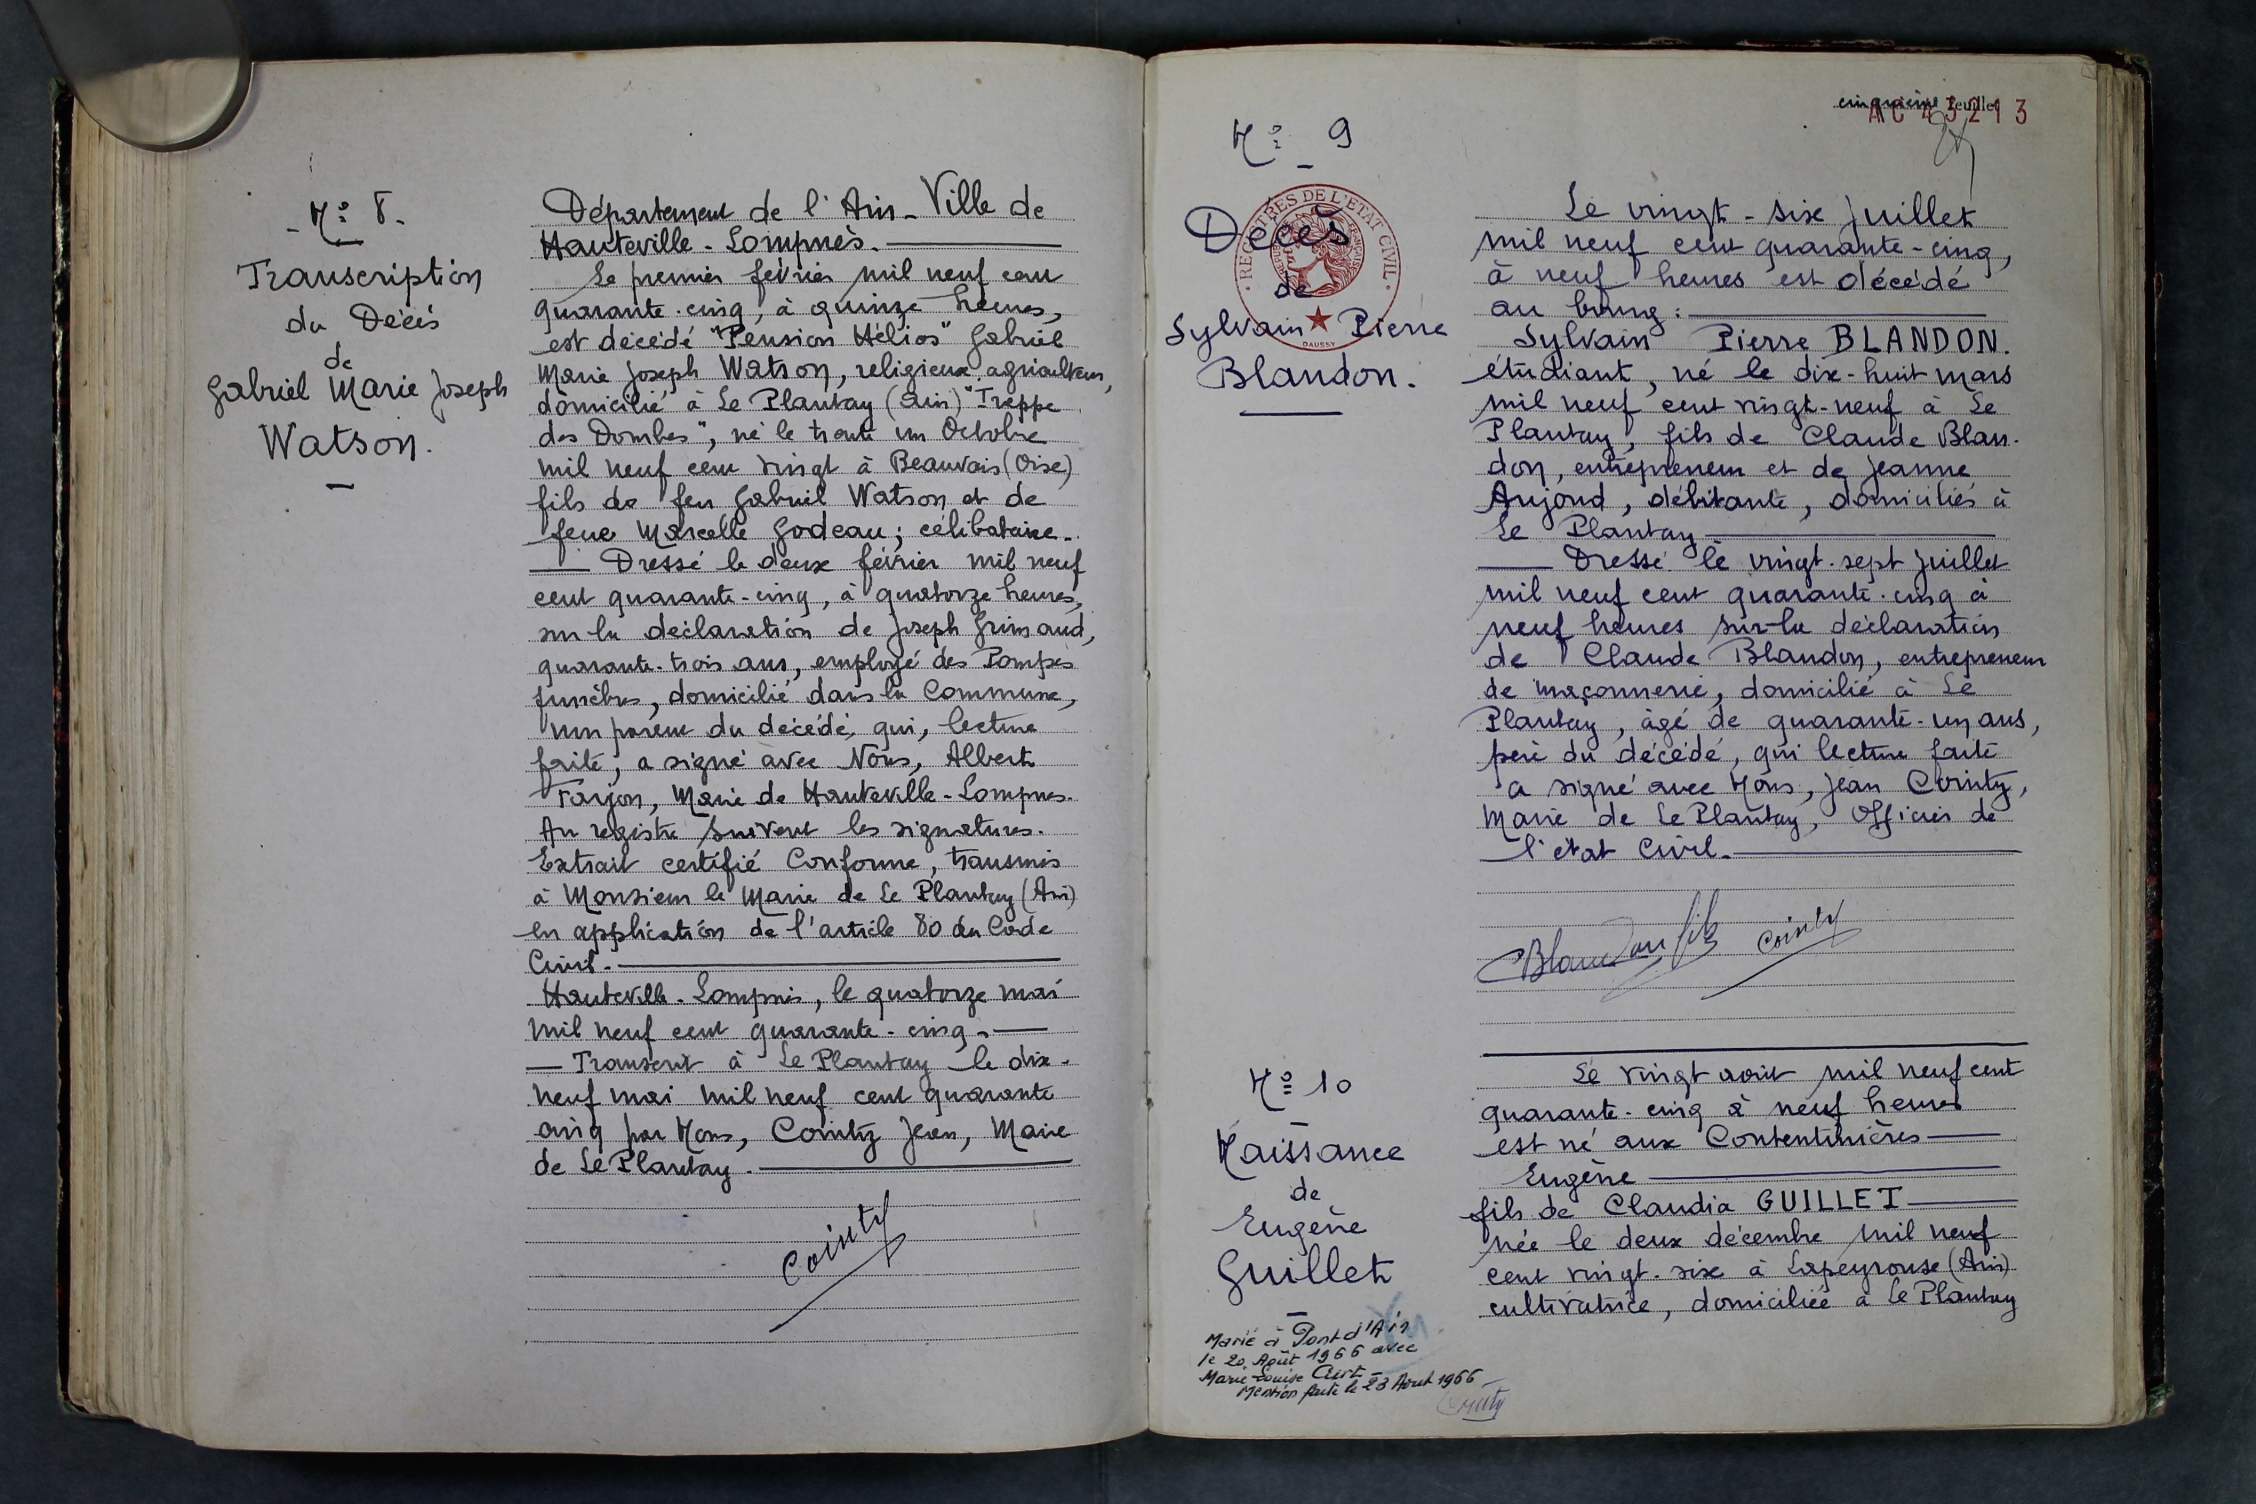 - Nº 8. -
Transcription
du Décès
de
Gabriel Marie Joseph
Watson.
Département de l'Ain - Ville de
Hauteville-Lompnès.
Le premier février mil neuf cent
quarante-cinq, à quinze heures,
est décédé "Pension Hélios" Gabriel
Marie Joseph Watson, religieux agriculteur,
domicilié à Le Plantay (Ain) "Trappe
des Dombes", né le trente un Octobre
mil neuf cent vingt à Beauvais (Oise)
fils de feu Gabriel Watson et de
feue Marcelle Godeau; célibataire.
Dressé le deux février mil neuf
cent quarante-cinq, à quatorze heures,
sur la déclaration de Joseph Grimaud,
quarante-trois ans, employé des Pompes
funèbres, domicilié dans la Commune,
non parent du décédé, qui, lecture
faite, a signé avec Nous, Albert
Farjon, Maire de Hauteville-Lompnes.
Au registre suivent les signatures.
Extrait certifié Conforme, transmis
à Monsieur le Maire de Le Plantay (Ain)
en application de l'article 80 du Code
Civil.
Hauteville-Lompnès, le quatorze mai
mil neuf cent quarante-cinq.
Transcrit à Le Plantay le dix-
neuf mai mil neuf cent quarante
cinq par Nous, Cointy Jean, Maire
de Le Plantay.
Cointy
cinquième feuillet
AC 43213
Nº 9
Décès
de
Sylvain Pierre
Blandon.
REGISTRES DE L'ETAT CIVIL
REPUBLIQUE FRANÇAISE
DAUSSY
Le vingt-six Juillet
mil neuf cent quarante-cinq,
à neuf heures est décédé
au bourg:
Sylvain Pierre BLANDON.
étudiant, né le dix-huit mars
mil neuf cent vingt-neuf à Le
Plantay, fils de Claude Blan-
don, entrepreneur et de Jeanne
Anjoud, débitante, domiciliés à
Le Plantay
Dressé le vingt-sept Juillet
mil neuf cent quarante-cinq à
neuf heures sur la déclaration
de Claude Blandon, entrepreneur
de maçonnerie, domicilié à Le
Plantay, âgé de quarante-un ans,
père du décédé, qui lecture faite
a signé avec Nous, Jean Cointy,
Maire de Le Plantay, Officier de
l'état Civil.
Blandon fils Cointy
Nº 10
Naissance
de
Eugène
Guillet
Le vingt août mil neuf cent
quarante-cinq à neuf heures
est né aux Contentinières
Eugène
fils de Claudia GUILLET
née le deux décembre mil neuf
cent vingt-six à Lapeyrouse (Ain)
cultivatrice, domiciliée à Le Plantay
Marié à Pont d'Ain
le 20 Août 1966 avec
Marie-Louise Curt -
Mention faite le 23 Aout 1966
Cointy